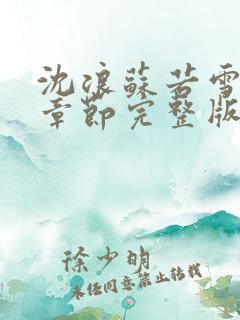 沈浪蘇若雪
章節完整版
徐少明
未经同意禁止转载